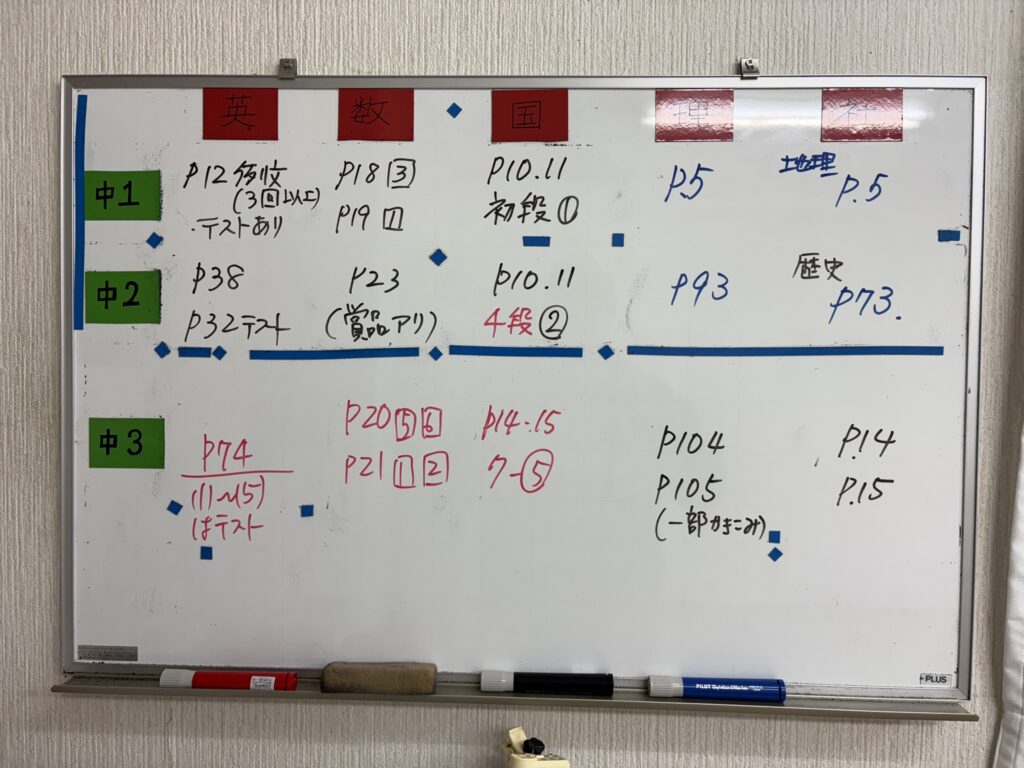 英 数 国 理 社
中1
p12 復習
(3回以上)
・テストあり
p18 ③
p19 ①
p10.11
初段①
p.5
地理
p.5
中2
p38
p32テスト
p23
(賞品アリ)
p10.11
4段②
p93
歴史
p73.
中3
p74
(1)~(5)
はテスト
p20 5 6
p21 1 2
p14-15
ワー⑤
p104
p105
(一部かきこみ)
p.14
p.15
PILOT WyteboardMarker
PLUS